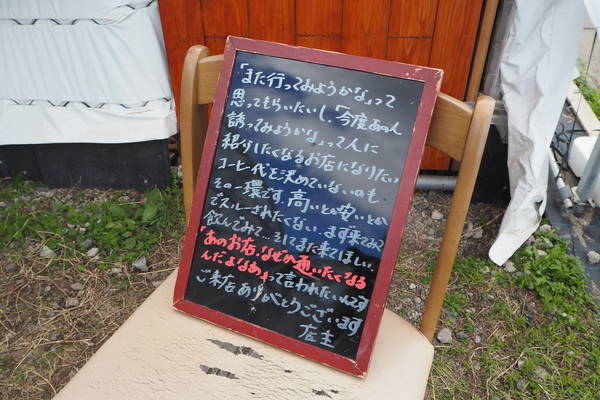 「また行ってみようかな」って
思ってもらいたいし、「今度あの人
誘ってみようかな」って人に
紹介したくなるお店になりたい
コーヒー代を決めていないのも
その一環です。高いとか安いとか
でスルーされたくない、まず来てみて
飲んでみて…そしてまた来てほしい。
「あのお店、なぜか通いたくなる
んだよなあ」って言われたいんです
ご来店ありがとうございます
店主